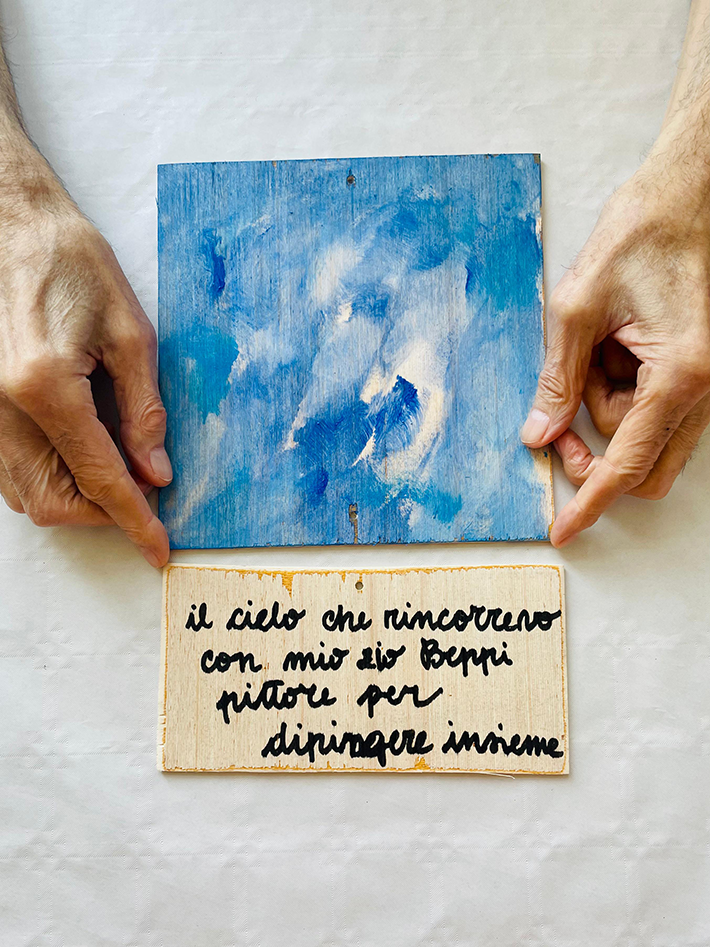 il cielo che rincorrevo
con mio zio Beppi
pittore per
dipingere insieme